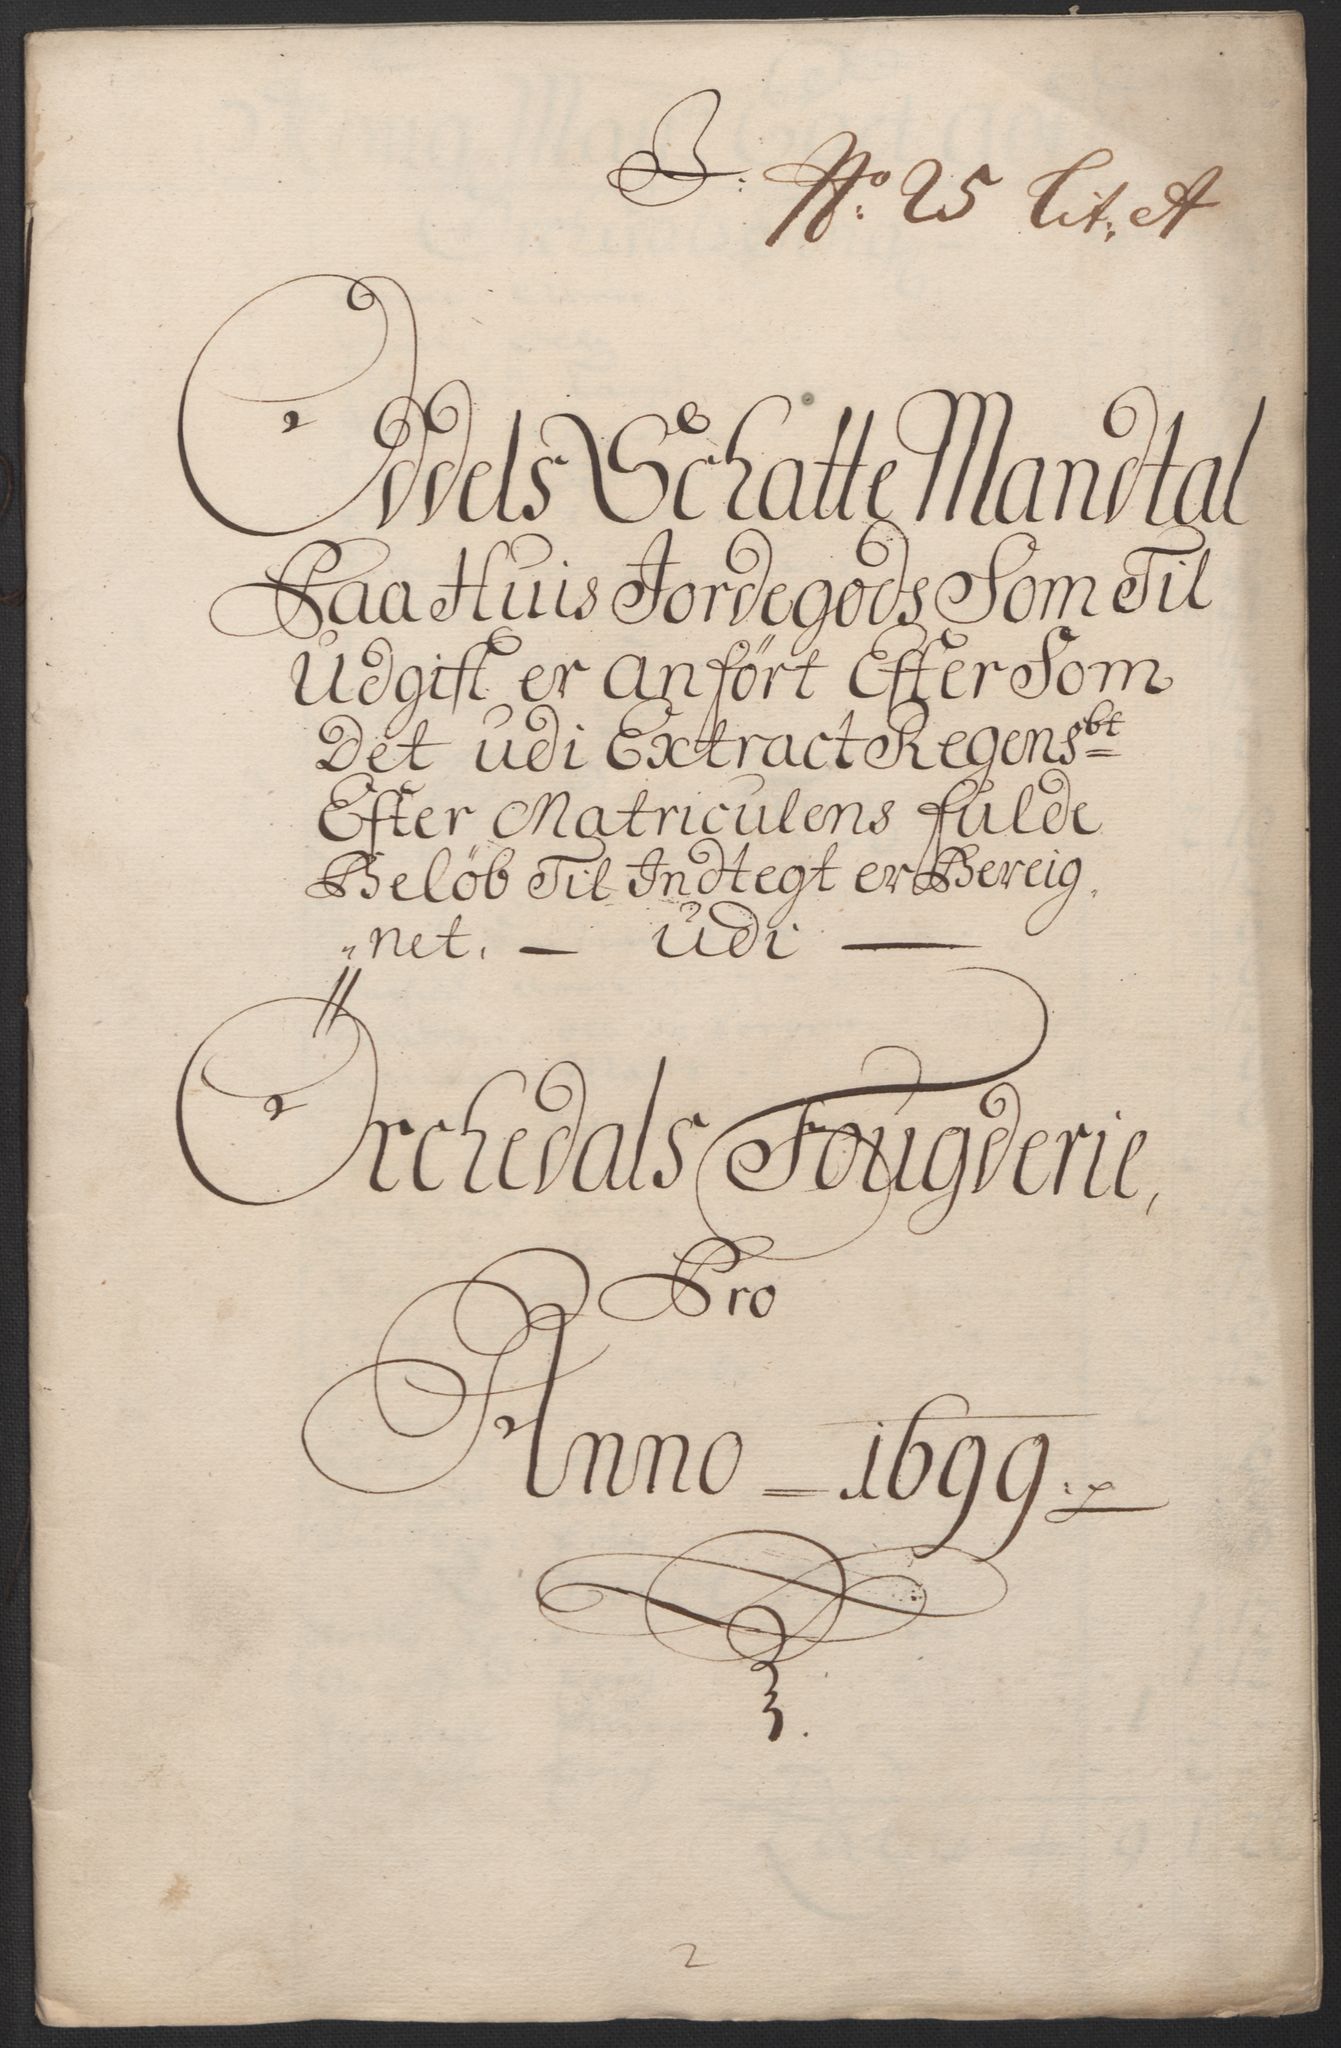 B: No: 25 Lit: A
Oddels Schatte Mandtal
Paa Huis Jordegods Som Til
Udgift er anfört Efter Som
Det udi Extract Regensbt
Efter Matriculens fulde
Belöb Til Indtegt er Bereig„
„net. — udi —
Orchedals Fougderie,
Pro
Anno = 1699
2